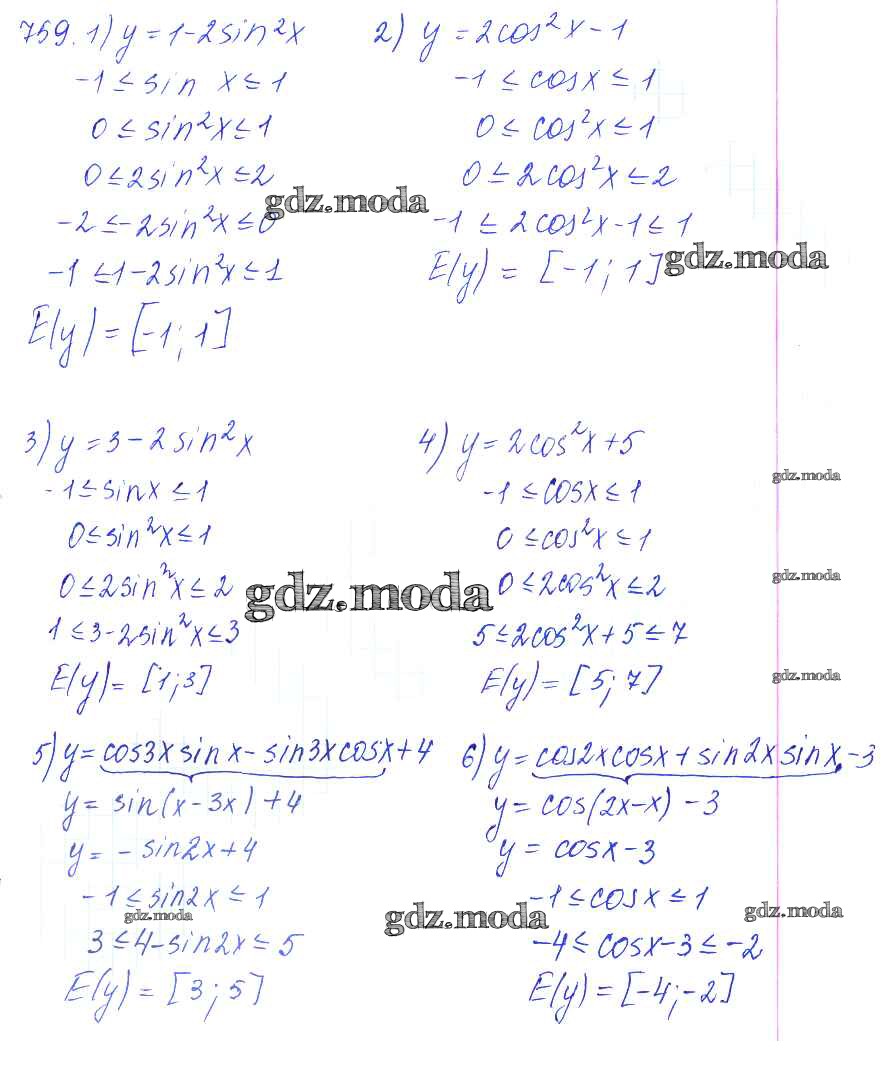 759. 1) y = 1-2sin²x
-1 ≤ sin x ≤ 1
0 ≤ sin²x ≤ 1
0 ≤ 2sin²x ≤ 2
-2 ≤ -2sin²x ≤ 0
-1 ≤ 1-2sin²x ≤ 1
E(y) = [-1; 1]
2) y = 2cos²x - 1
-1 ≤ cosx ≤ 1
0 ≤ cos²x ≤ 1
0 ≤ 2cos²x ≤ 2
-1 ≤ 2cos²x-1 ≤ 1
E(y) = [-1; 1]
gdz.moda
gdz.moda
3) y = 3-2sin²x
-1 ≤ sinx ≤ 1
0 ≤ sin²x ≤ 1
0 ≤ 2sin²x ≤ 2
1 ≤ 3-2sin²x ≤ 3
E(y) = [1; 3]
gdz.moda
4) y = 2cos²x+5
-1 ≤ cosx ≤ 1
0 ≤ cos²x ≤ 1
0 ≤ 2cos²x ≤ 2
5 ≤ 2cos²x+5 ≤ 7
E(y) = [5; 7]
gdz.moda
gdz.moda
gdz.moda
5) y = cos3x sinx - sin3x cosx + 4
y = sin(x-3x) + 4
y = -sin2x+4
-1 ≤ sin2x ≤ 1
gdz.moda
3 ≤ 4-sin2x ≤ 5
E(y) = [3; 5]
gdz.moda
6) y = cos2xcosx + sin2x sinx - 3
y = cos(2x-x) - 3
y = cosx - 3
-1 ≤ cosx ≤ 1
gdz.moda
-4 ≤ cosx-3 ≤ -2
E(y) = [-4; -2]